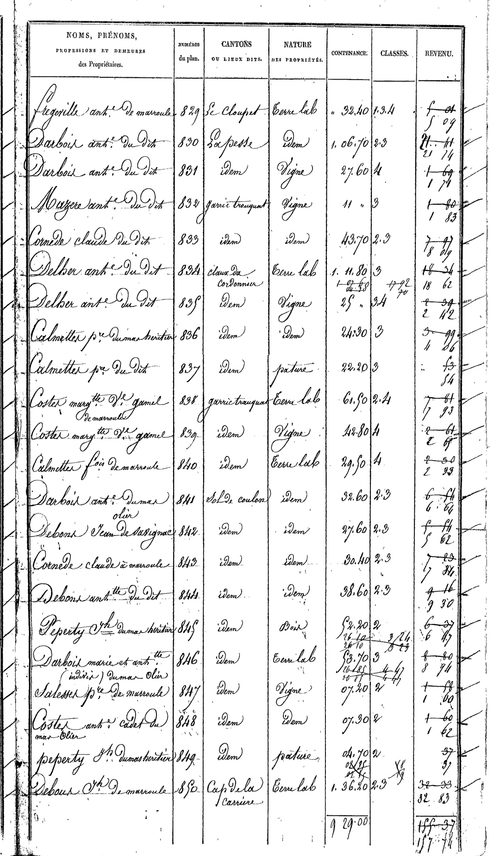 NOMS, PRÉNOMS, PROFESSIONS ET DEMEURES des Propriétaires. NUMÉROS du plan. CANTONS OU LIEUX DITS. NATURE DES PROPRIÉTÉS. CONTENANCE. CLASSES. REVENU.
antne. de marroule 829 Le cloupet Terre lab " 32.40 1.3.4 5 01
5 09
Darbois antne. du dit 830 La pesse idem 1. 06.70 2.3 21 41
21 74
Darbois antne. du dit 831 idem Vigne 27.60 4 1 69
1 71
Mazere antne. du dit 832 garric trauquat Vigne 11 " 3 1 80
1 83
Cornede claude du dit 833 idem idem 43.70 2.3 7 97
8 09
Delher antne. du dit 834 claux du cordonnier Terre lab 1. 11.80 3 18 34
18 62
Delher antne. du dit 835 idem Vigne 25 " 3.4 2 39
2 42
Calmettes pre. du mas heritier 836 idem idem 24.30 3 3 99
4 06
Calmettes pre. du dit 837 idem pature 22.20 3 53
54
Costes margte. Ve. gamel de marroule 838 garric trauquat Terre lab 61.50 2.4 7 81
7 93
Costes margte. Ve. gamel 839 idem Vigne 42.80 4 2 61
2 65
Calmettes fois de marroule 840 idem Terre lab 29.50 4 2 30
2 33
Darbois antne. du mas olier 841 Sol de coulon idem 32.60 2.3 6 54
6 64
Debons Jean de Savignac 842 idem idem 27.60 2.3 5 54
5 62
Cornede claude à marroule 843 idem idem 30.40 2.3 7 23
7 34
Debons antne. du dit 844 idem idem 38.60 2.3 9 16
9 30
Peperty Jh. du mas heritier 845 idem Bois 52.20 2 6 37
6 47
Darbois marie et antne. (indivis) du mas olier 846 idem Terre lab 53.70 3 8 80
8 94
Salesses pre. de marroule 847 idem Vigne 07.20 2 1 58
1 60
Costes antne. cadet du mas olier 848 idem idem 07.30 2 1 60
1 62
peperty Jh. du mas heritier 849 idem pature 04.70 2 37
37
Debons Jh. de marroule 850 Cap de la Carriere Terre lab 1. 36.20 2.3 32 33
32 83
9 29.00 155 37
157 74